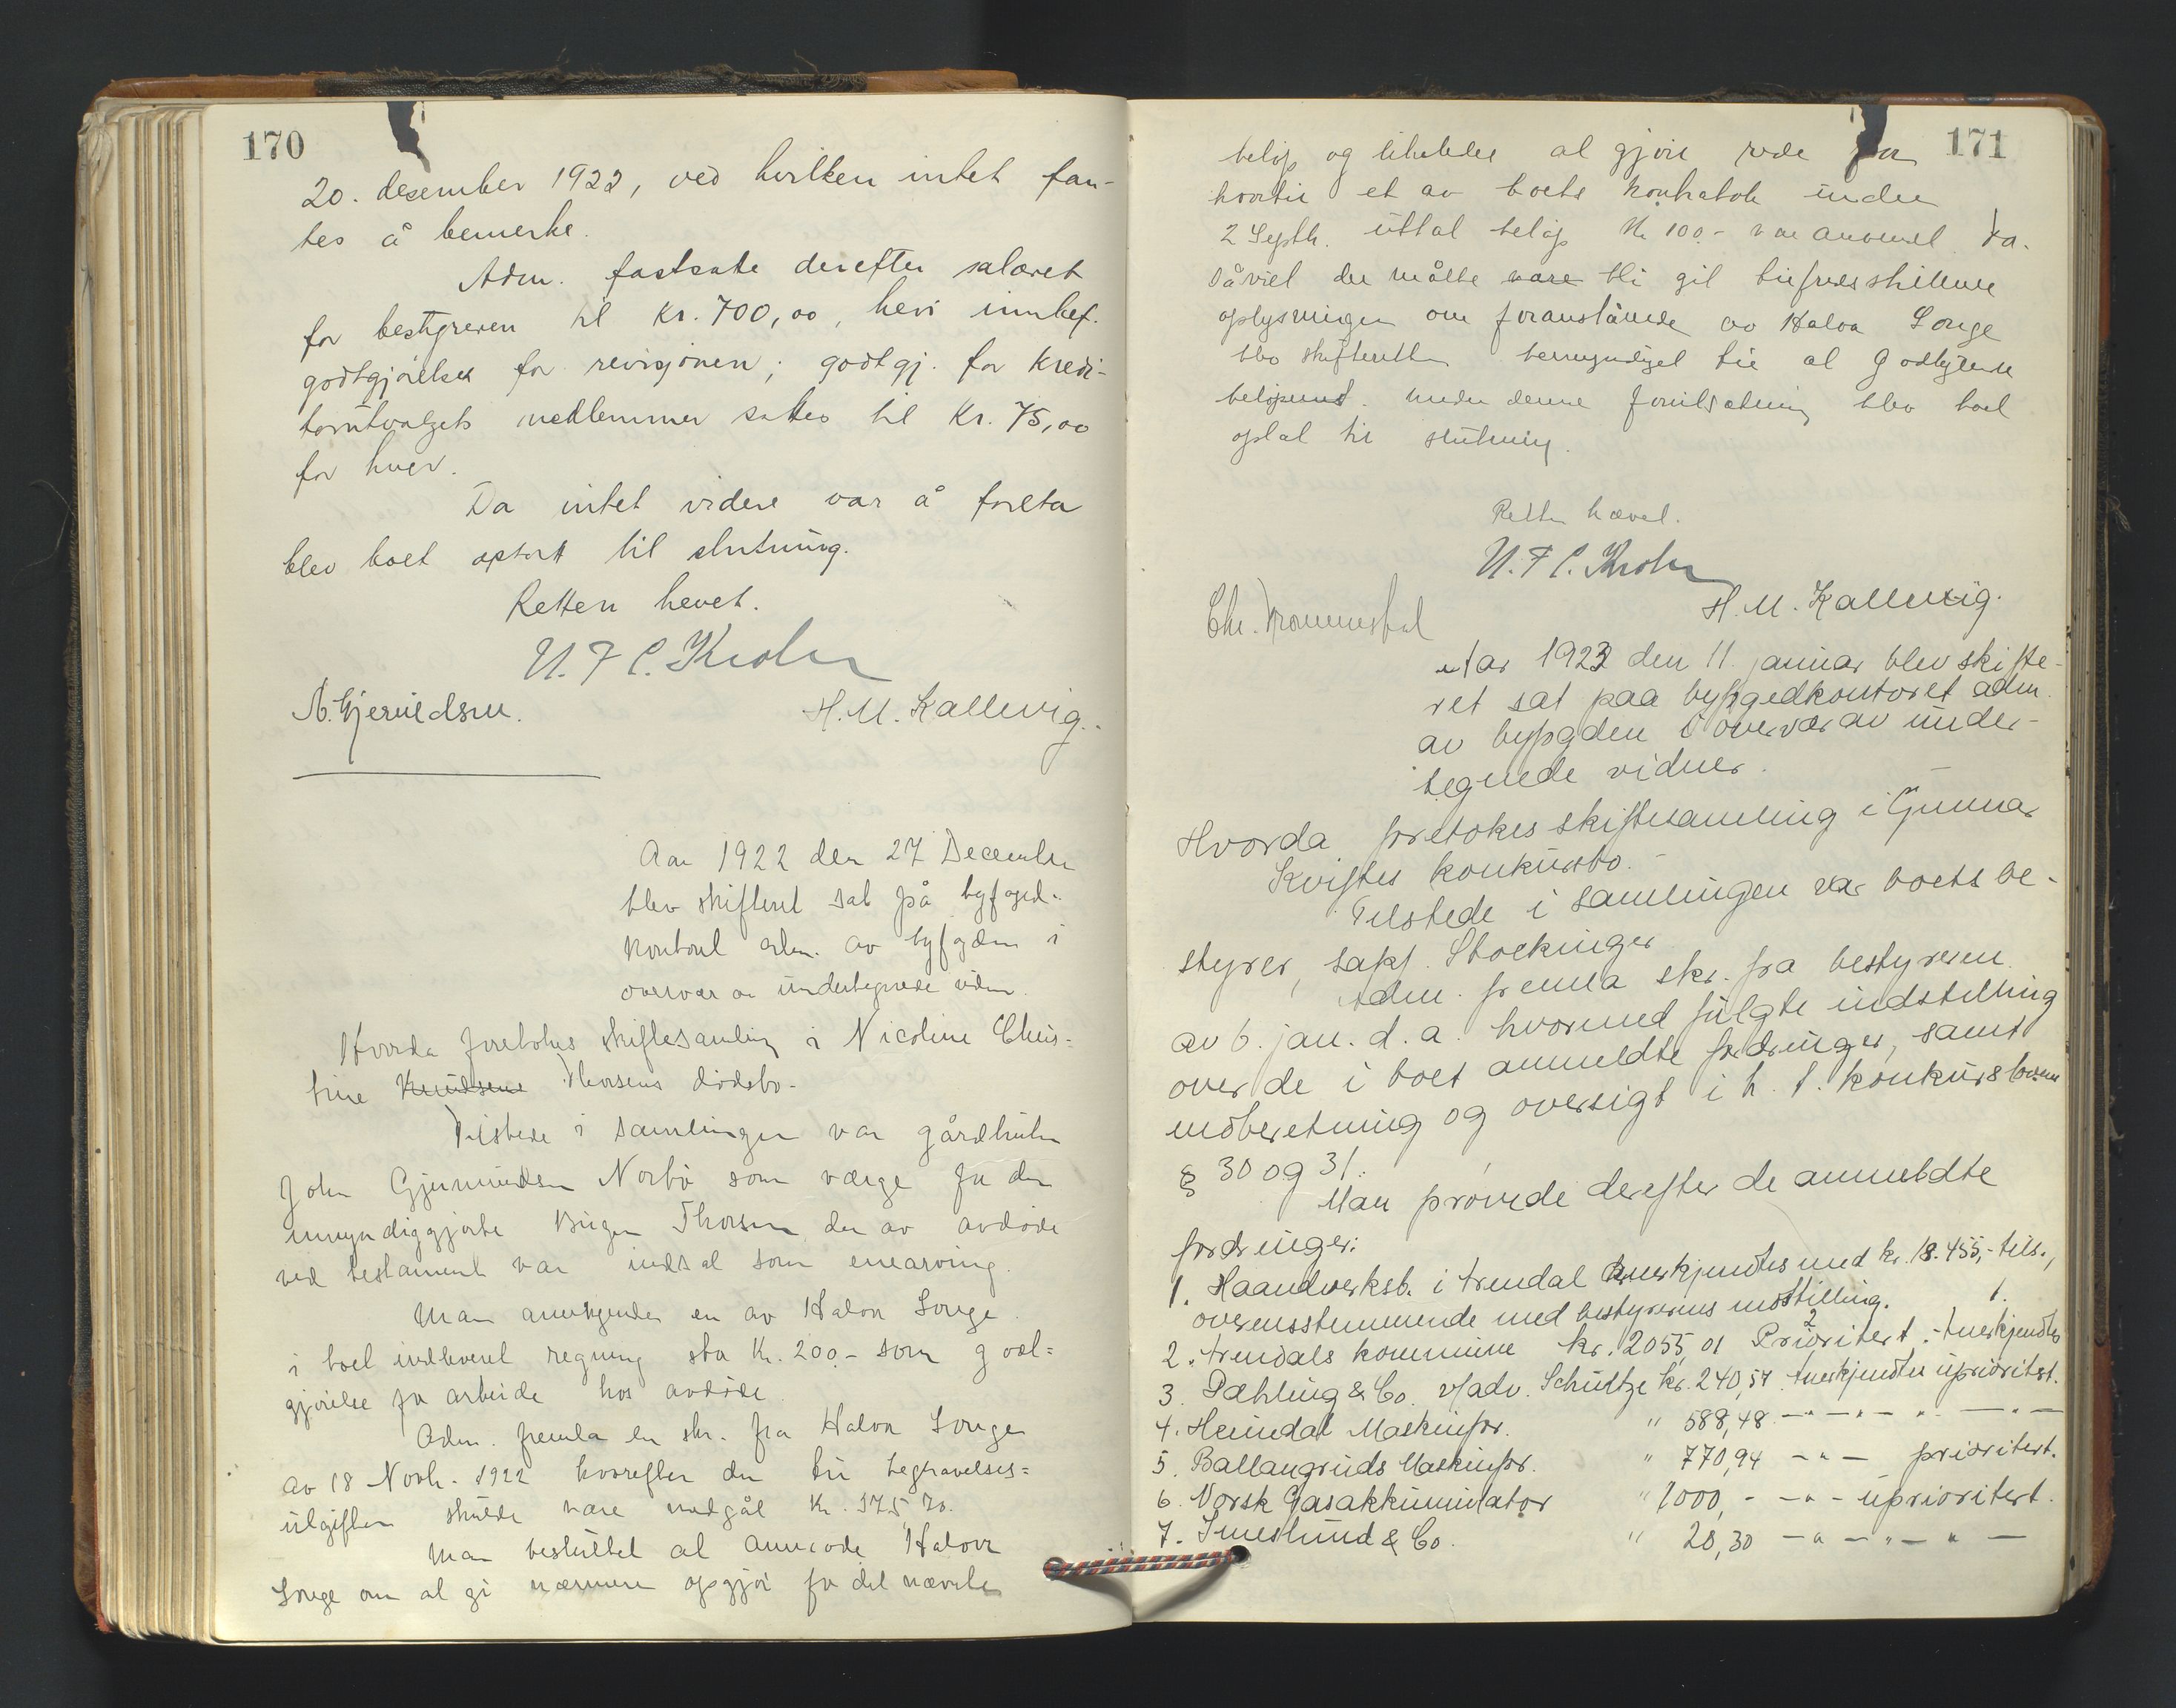 170
20. desember 1922, ved hvilken intet fan-
tes å bemerke.
Adm. fastsatte derefter salæret
for bestyreren til Kr. 700,00, heri innbef.
godtgjörelse for revisjonen; godtgj. for Kredi-
torutvalgets medlemmer sattes til Kr. 75,00
for hver.
Da intet videre var å foreta
blev boet optatt til slutning.
Retten hevet.
N. F C. Krohn
H. M. Kallevig.
Aar 1922 den 27 December
blev skifteret sat på byfoged-
kontoret adm. av byfogden i
overvær av undertegnede vidner.
Hvorda foretokes skiftesamling i Nicoline Chris-
tine Knudsens Thorsens dödsbo-
Tilstede i samlingen var gårdbruker
John Gjermundsen Norbö som værge for den
umyndiggjorte Birger Thorsen der av avdöde
ved testament var indsat som enearving.
Man anerkjendte en av Halvor Longe
i boet indleveret regning stor Kr. 200.- som godt=
gjörelse for arbeide hos avdöde
Adm. fremla en skr. fra Halvor Longe
av 18 Novbr. 1922 hvorefter der til begravelses=
utgifter skulde være medgåt Kr. 575,70.
Man besluttet at anmode Halvor
Longe om at gi nærmere opgjör for det nævnte
171
belöp og likeledes at gjöre rede for
hvortil et av boets kontrabok under
2 Septbr. uttat belöp Kr 100.- var anvendt. Da.
Såvist der måtte være bli git tilfredsstillende
oplysninger om foranstående av Halvor Longe
blev skifteretten bemyndiget til at godkjende
belöpene. Under denne forutsætning blev boet
optat til slutning.
Retten hævet.
N. F C. Krohn
H. M. Kallevig.
Aar 1923 den 11. januar blev skifte-
ret sat paa byfogedkontoret adm.
av byfogden i overvær av under-
tegnede vidner.
Hvorda foretokes skiftesamling i Gunnar
Kviftes konkursbo.
Tilstede i samlingen var boets be-
styrer, sakf. Stockinger
Adm. fremla skr. fra bestyreren
av 6. jan. d. a. hvormed fulgte indstilling
over de i boet anmeldte fordringer, samt
indberetning og oversigt i h. t. konkurslovens
§ 30 og 31.
Man prövede derefter de anmeldte
fordringer:
1. Haandverksb. i Arendal Anerkjendtes med kr. 18.455,- tils.,
overensstemmende med bestyrerens indstilling. 1.
2. Arendals kommune kr. 2055,01 Prioritert. Anerkjendtes
3. Dæhling & Co. v/adv. Schultze kr. 240,57. Anerkjendtes uprioritert.
4. Heimdal Maskinfor. " 588,48 — " — " — " — " —
5. Ballangruds Maskinfor. " 770,94 — " — prioritert.
6. Norsk Gasakkumulator " 1000, - — " — uprioritert.
7. & Co. " 28,30 — " — " — " —